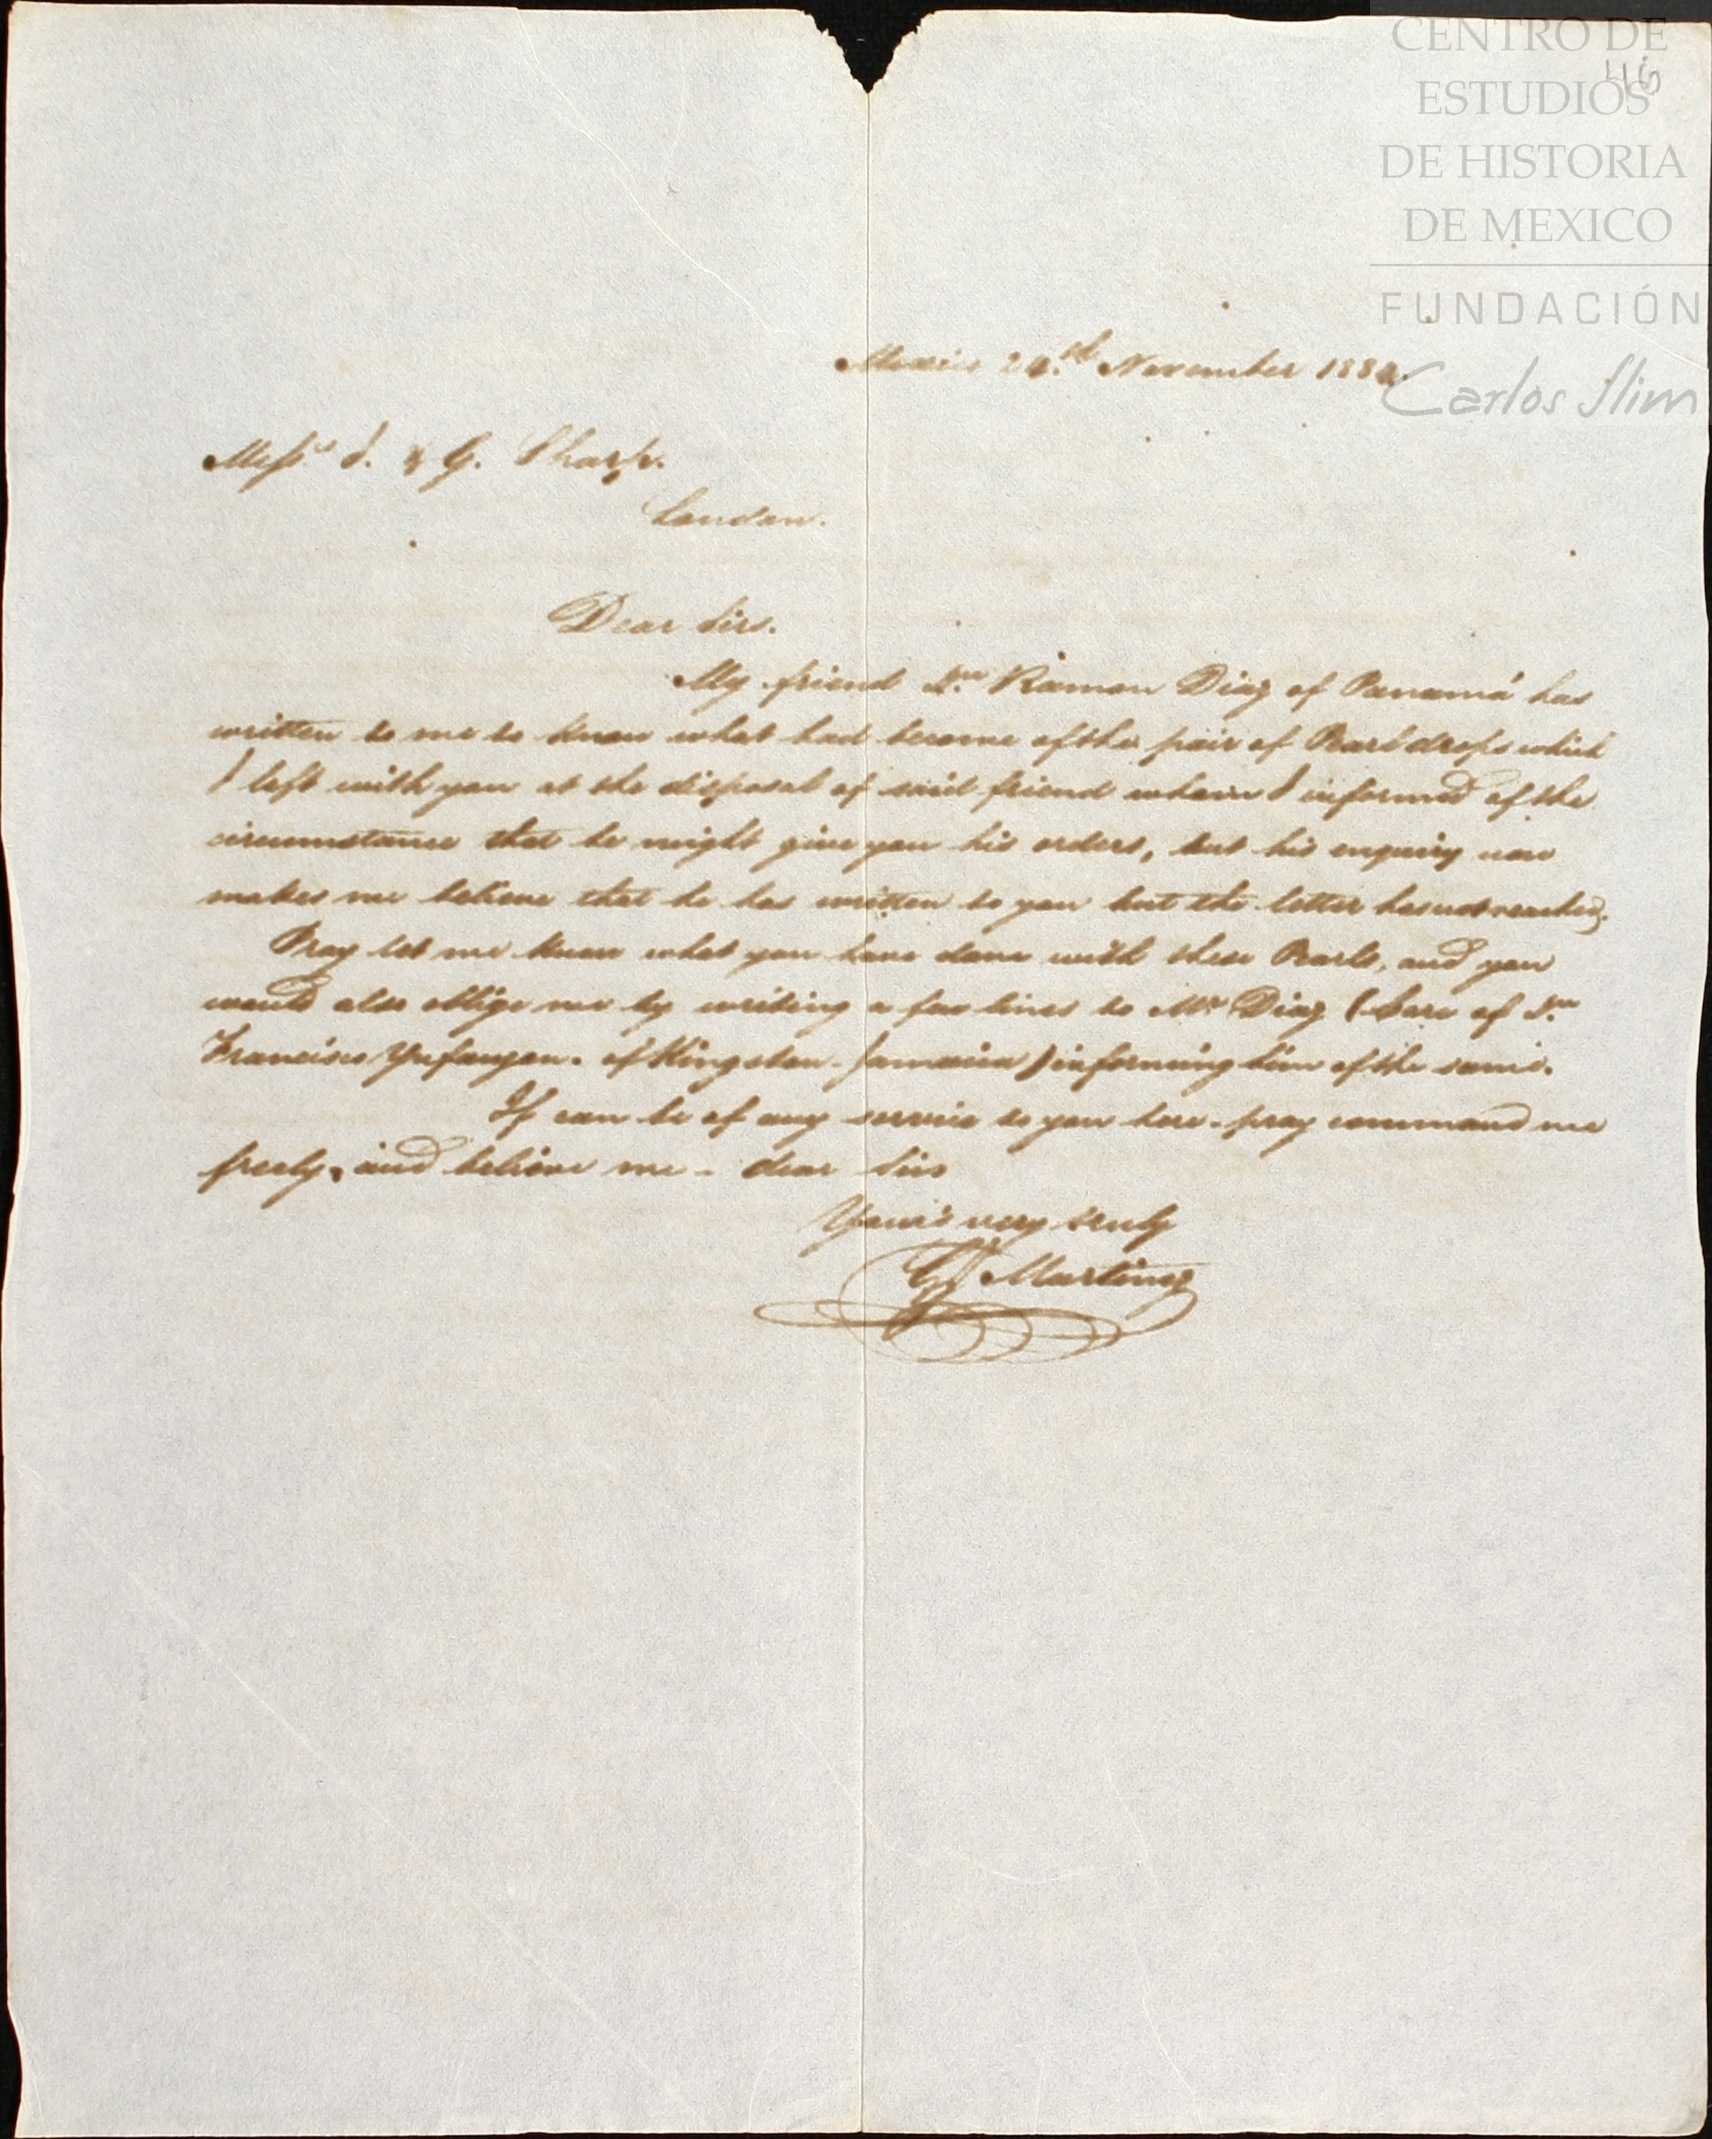 CENTRO DE
ESTUDIOS
DE HISTORIA
DE MEXICO
FUNDACIÓN
Carlos Slim
46
Mexico November
Messrs. J. & G. Sharp.
London.
Dear Sirs.
My friend Dn Ramon Diaz of Panamá has
written to me to know what had become of the pair of Pearl drops which
I left with you at the disposal of said friend whom I informed of the
circumstance that he might give you his orders, but his enquiry now
makes me believe that he has written to you but the letter has not reached.
Pray let me know what you have done with these Pearls, and you
would also oblige me by writing a few lines to Mr Diaz (Care of Dn
Francisco of Kingston - Jamaica) informing him of the same.
If can be of any service to you here - pray command me
freely, and believe me - dear Sirs
Your's very truly
Martinez